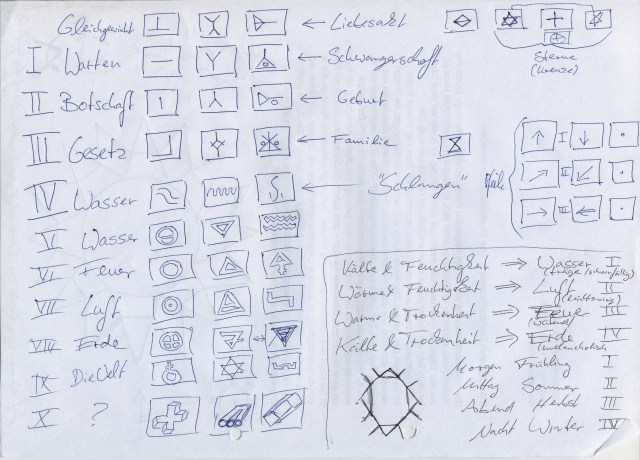 Gleichgewicht ← Liebesakt
I Warten ← Schwangerschaft
II Botschaft ← Geburt
III Gesetz ← Familie
IV Wasser ← "Schlangen"
V Wasser
VI Feuer
VII Luft
VIII Erde
IX Die Welt
X ?
Sterne
(Kreuze)
Pfeile
I
II
III
Kälte & Feuchtigkeit ⇒ Wasser I
Wärme & Feuchtigkeit ⇒ Luft II
Wärme & Trockenheit ⇒ Feuer III
Kälte & Trockenheit ⇒ Erde IV
(melancholisch)
Morgen Frühling I
Mittag Sommer II
Abend Herbst III
Nacht Winter IV